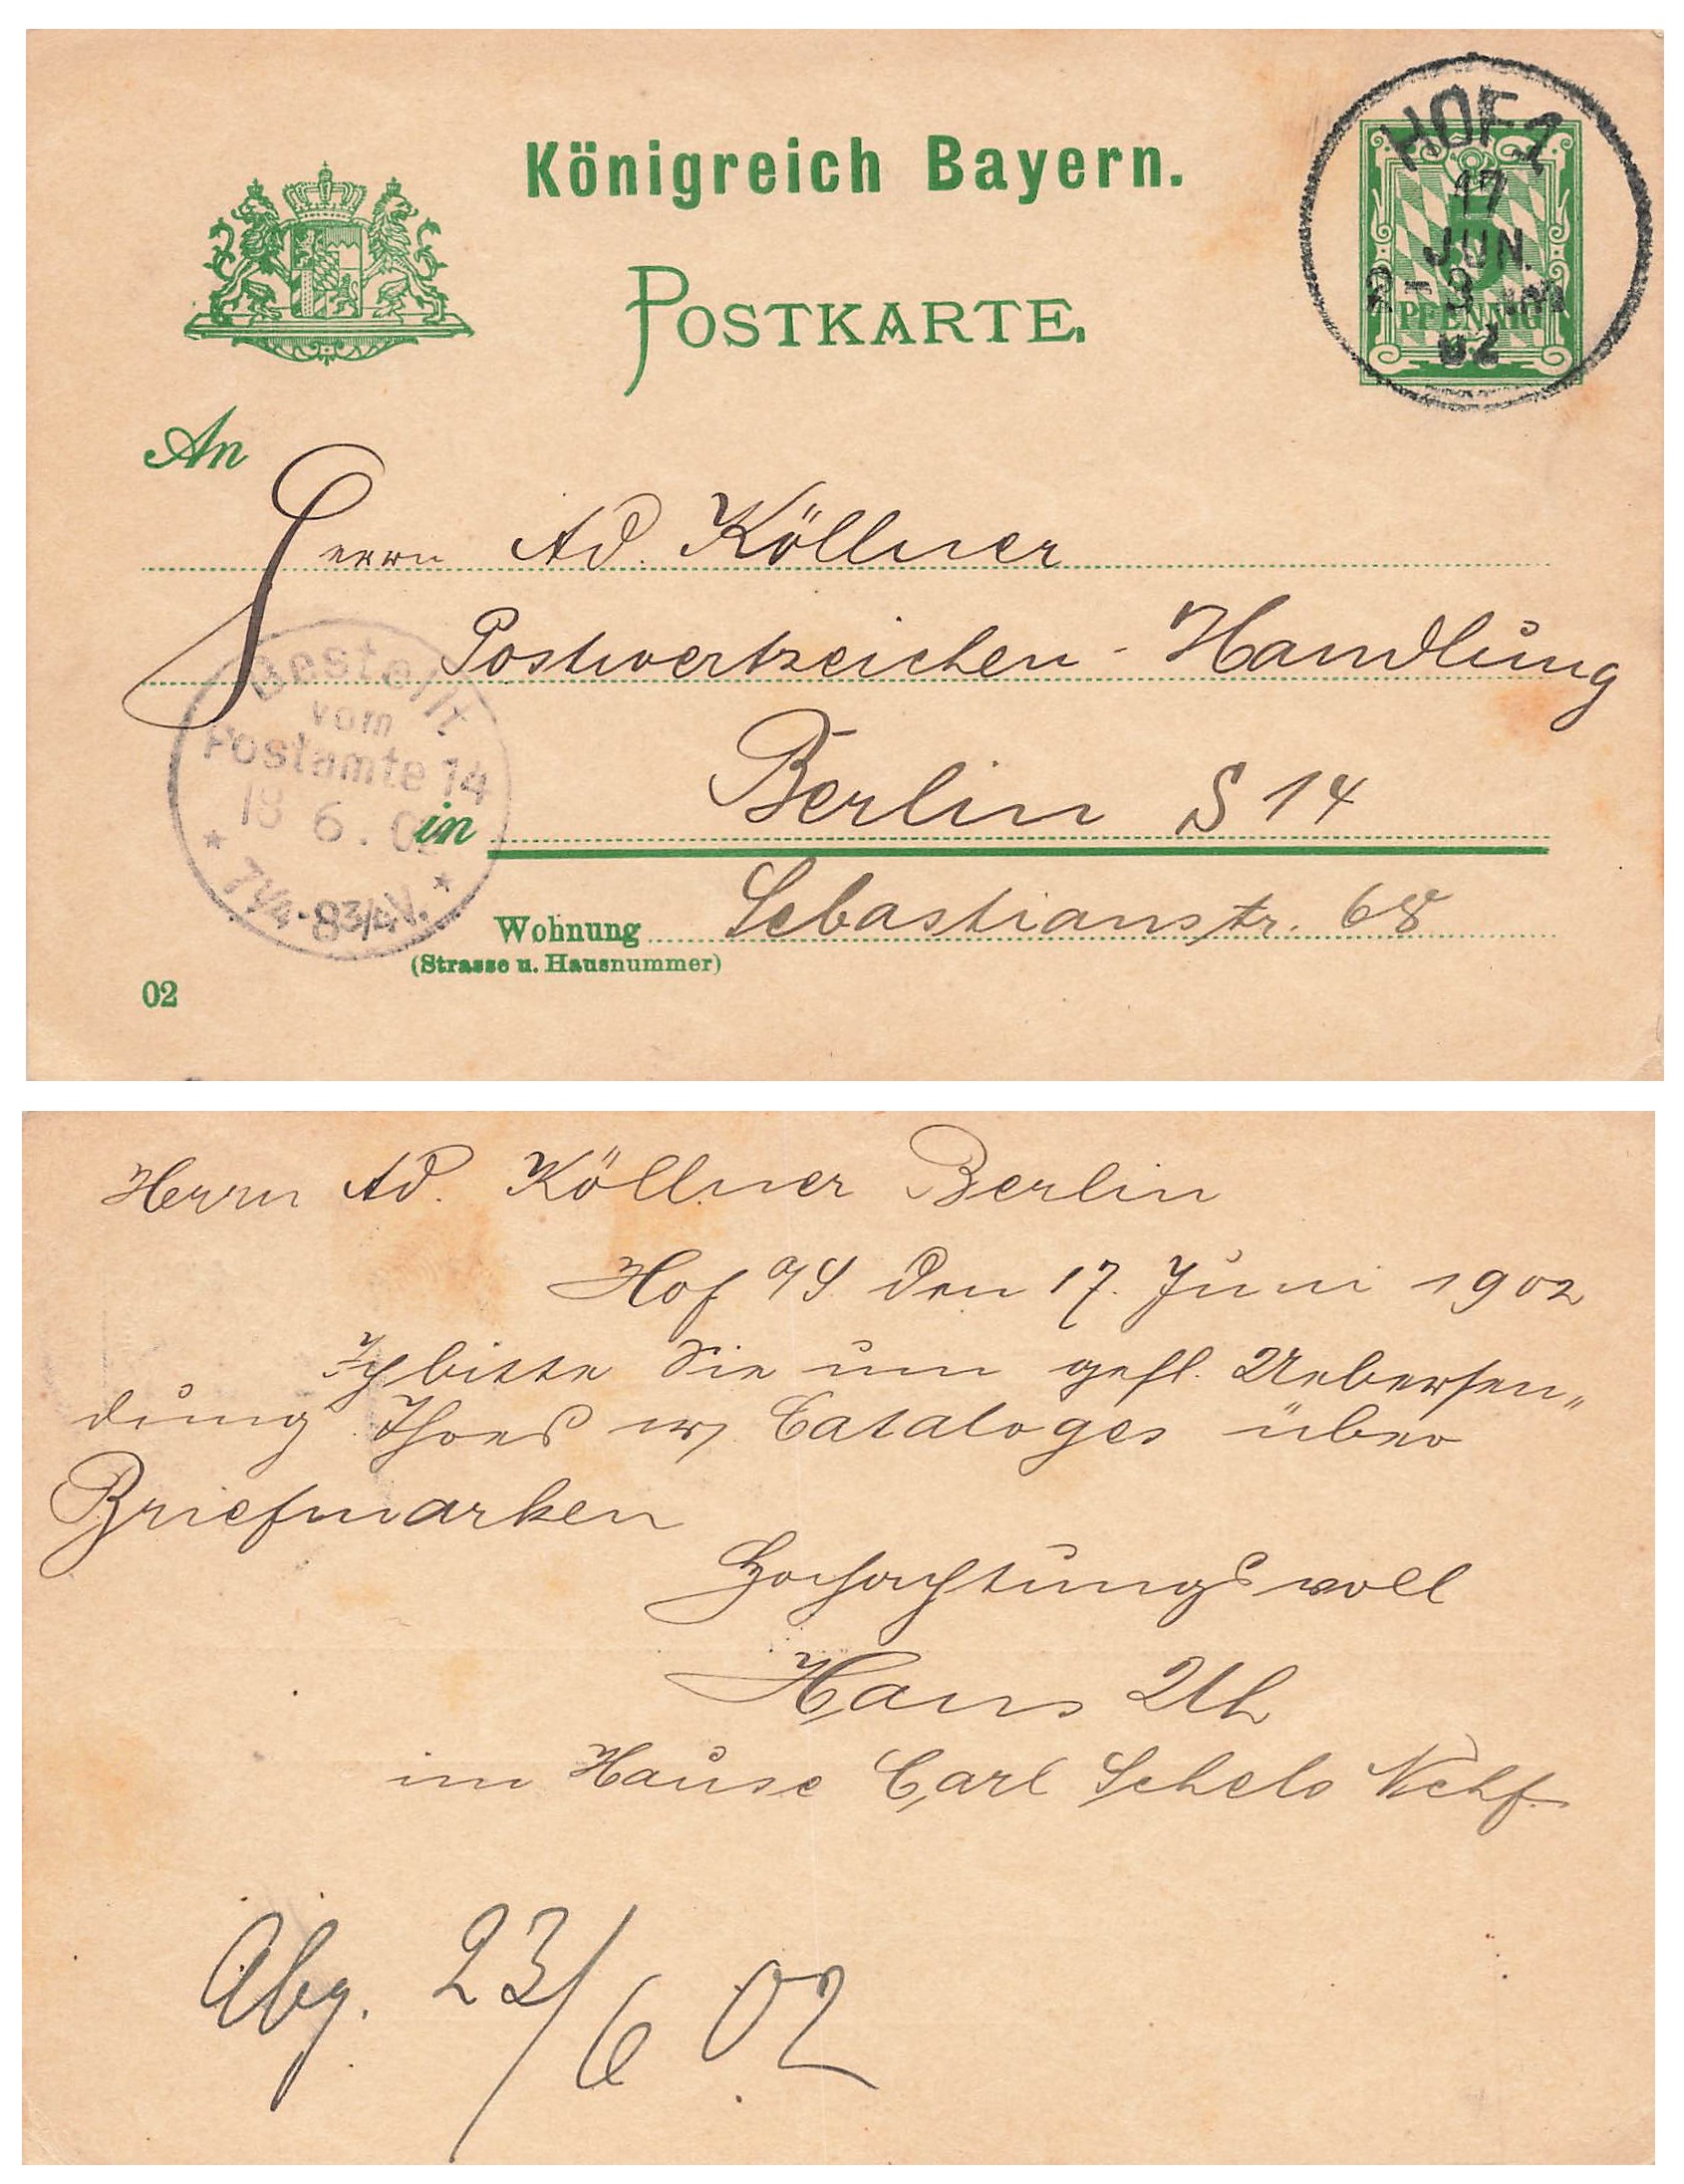 Königreich Bayern.
POSTKARTE.
HOF 1
17
JUN.
2-3 NM
02
5
PFENNIG
An
Herrn Ad. Köllner
Postwertzeichen-Handlung
in Berlin S 14
Wohnung Sebastianstr. 68
(Strasse u. Hausnummer)
02
Bestellt
vom
Postamte 14
18 6. 02
* 7¼-8¾V. *
Herrn Ad. Köllner Berlin
Hof a/S den 17. Juni 1902
Ich bitte Sie um gefl. Uebersen„
dung Ihres Cataloges über
Briefmarken
Hochachtungsvoll
Hans Uh
im Hause Carl Nchf.
Abg. 23/6 02